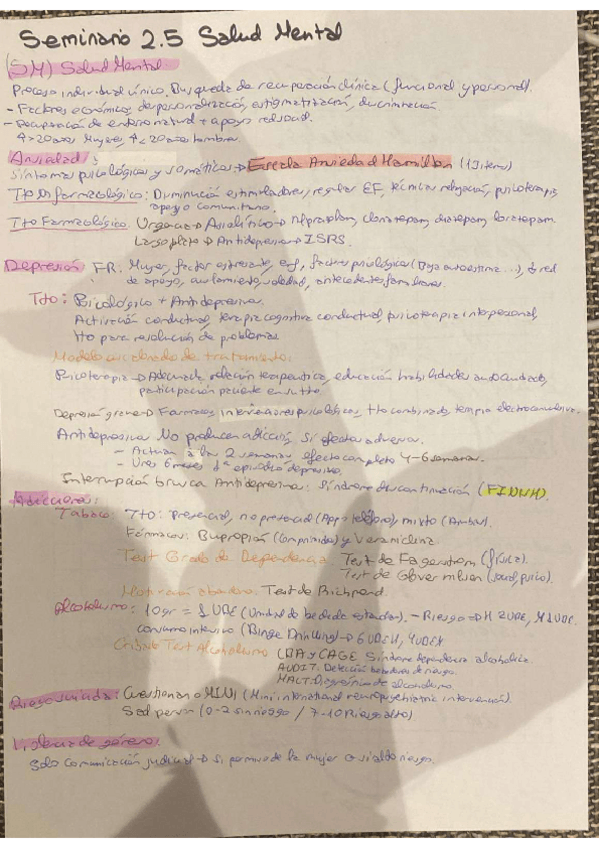 Seminario 2.5 Salud Mental
(SM) Salud Mental
Proceso individual único, Busqueda de recuperación clínica (funcional y personal).
- Factores económicos, despersonalización, estigmatización, discriminación.
- Recuperación de entorno natural + apoyo
4>20años Mujeres, 4<20años hombres.
Ansiedad:
Síntomas psicológicos y somáticos → Escala Ansiedad Hamilton (13 items)
Tto No farmacológico: Disminución estimuladores, regular EF, técnicas relajación, psicoterapia,
apoyo comunitario.
Tto Farmacológico. Urgencia → Ansiolítico → Alprazolam, clonazepam, diazepam, lorazepam.
Largo plazo → Antidepresivo → ISRS.
Depresión FR. Mujer, factor estresante, enf, factores psicológicos (Baja autoestima...), red
de apoyo, aislamiento, soledad, antecedentes familiares.
Tto: Psicológico + Antidepresivo.
Activación conductual, terapia cognitivo conductual, psicoterapia interpersonal,
tto para resolución de problemas.
Modelo escalonado de tratamiento:
Psicoterapia → Adecuada relación terapeutica, educación habilidades autocuidado,
participación paciente en su tto.
Depresión grave → Farmacos, intervenciones psicológicas, tto combinado, terapia electroconvulsiva.
Antidepresivos No producen adicción, Si efectos adversos.
- Actuan a las 2 semanas, efecto completo 4-6 semanas.
- Unos 6 meses 1er episodio depresivo.
Interrupción brusca Antidepresivos: Síndrome discontinuación (FINISH).
Adicciones:
Tabaco. Tto: Presencial, no presencial (App o teléfono), mixto (Ambas).
Fármacos: Bupropión (Comprimidos) y Vareniclina.
Test Grado de Dependencia Test de Fagerstrom (física).
Test de Glover nilson (social, psico).
Motivación abandono: Test de Richmond.
Alcoholismo: 10gr = 1 UBE (Unidad de bebida estandar). - Riesgo → H 2UBE, M 1UBE.
consumo intensivo (Binge Drinking) → 6UBEH, 4UBEM.
Test Alcoholismo CBA y CAGE Síndrome dependencia alcoholica.
AUDIT: Detección bebedores de riesgo.
MALT: Diagnóstico de alcoholismo.
Riesgo suicida: Cuestionario MINI (Mini international neuropsychiatric intervención).
Sad person (0-2 sin riesgo / 7-10 Riesgo alto)
Violencia de género.
Solo Comunicación judicial → Si permiso de la mujer o si alto riesgo.